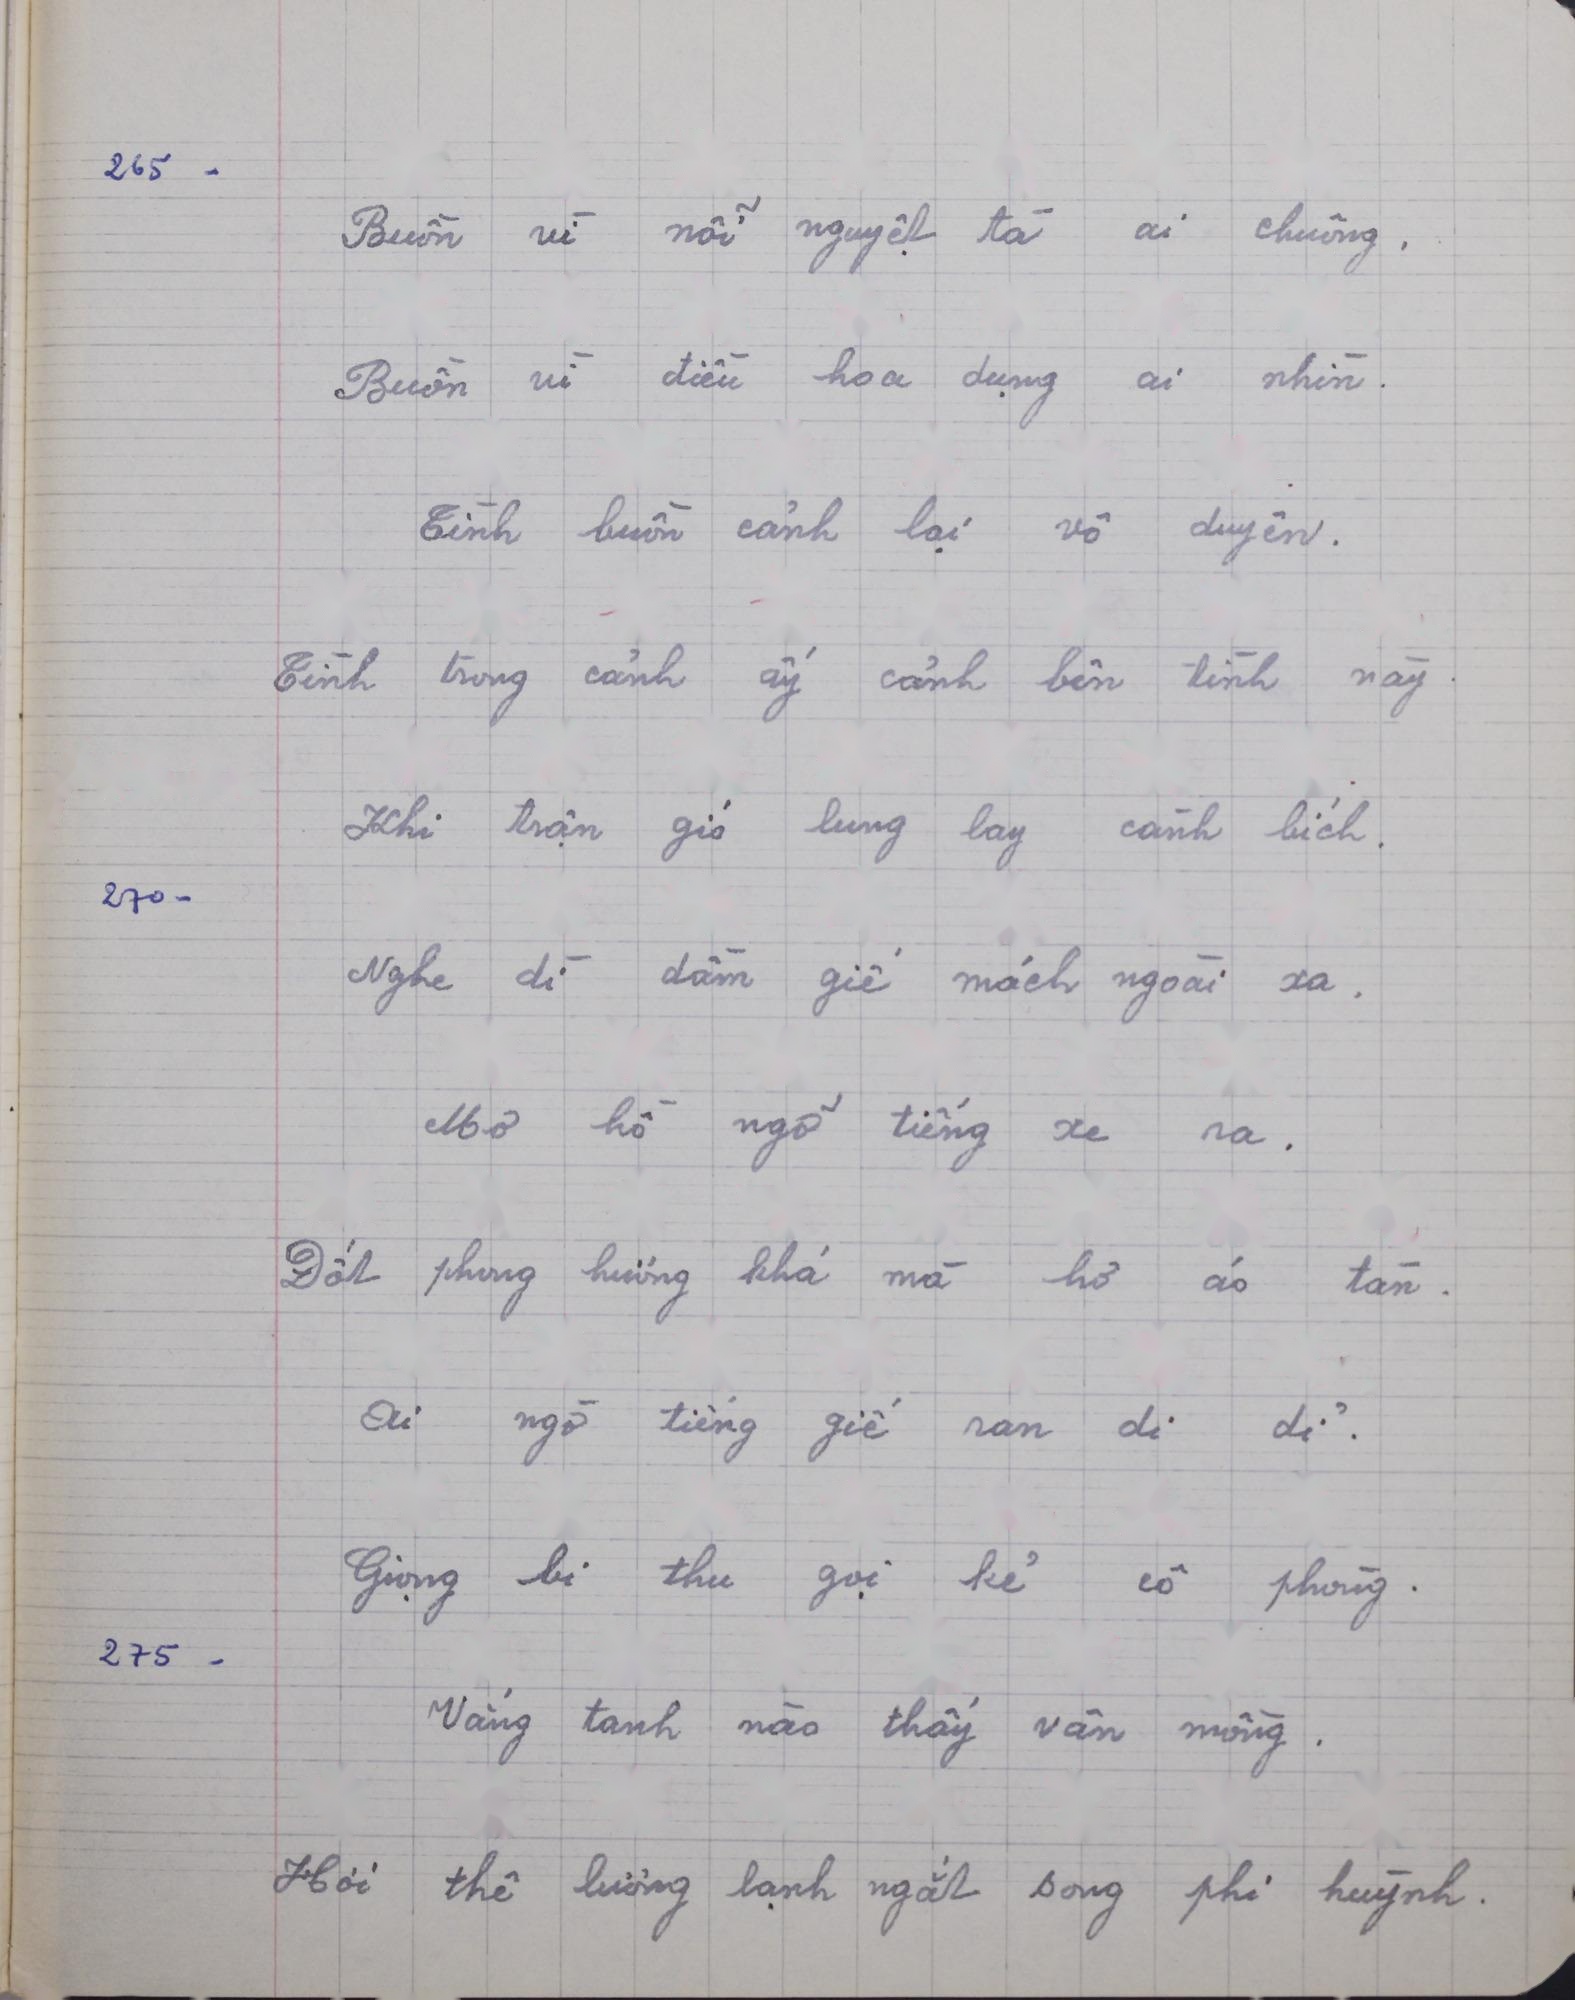 265 -
Buồn vì nỗi nguyệt tà ai chuộng,
Buồn vì điều hoa dụng ai nhìn.
Tình buồn cảnh lại vô duyên.
Tình trong cảnh ấy cảnh bên tình này.
Khi trận gió lung lay cành bích.
270 -
Nghe dì dầm giế mách ngoài xa.
Mơ hồ ngỡ tiếng xe ra.
Đốt phong hương khá mà hơ áo tàn.
Ai ngờ tiếng giế ran di dỉ.
Giọng bi thu gọi kẻ cô phòng.
275 -
Vắng tanh nào thấy vân mồng.
Hơi thê lương lạnh ngắt song phi huỳnh.